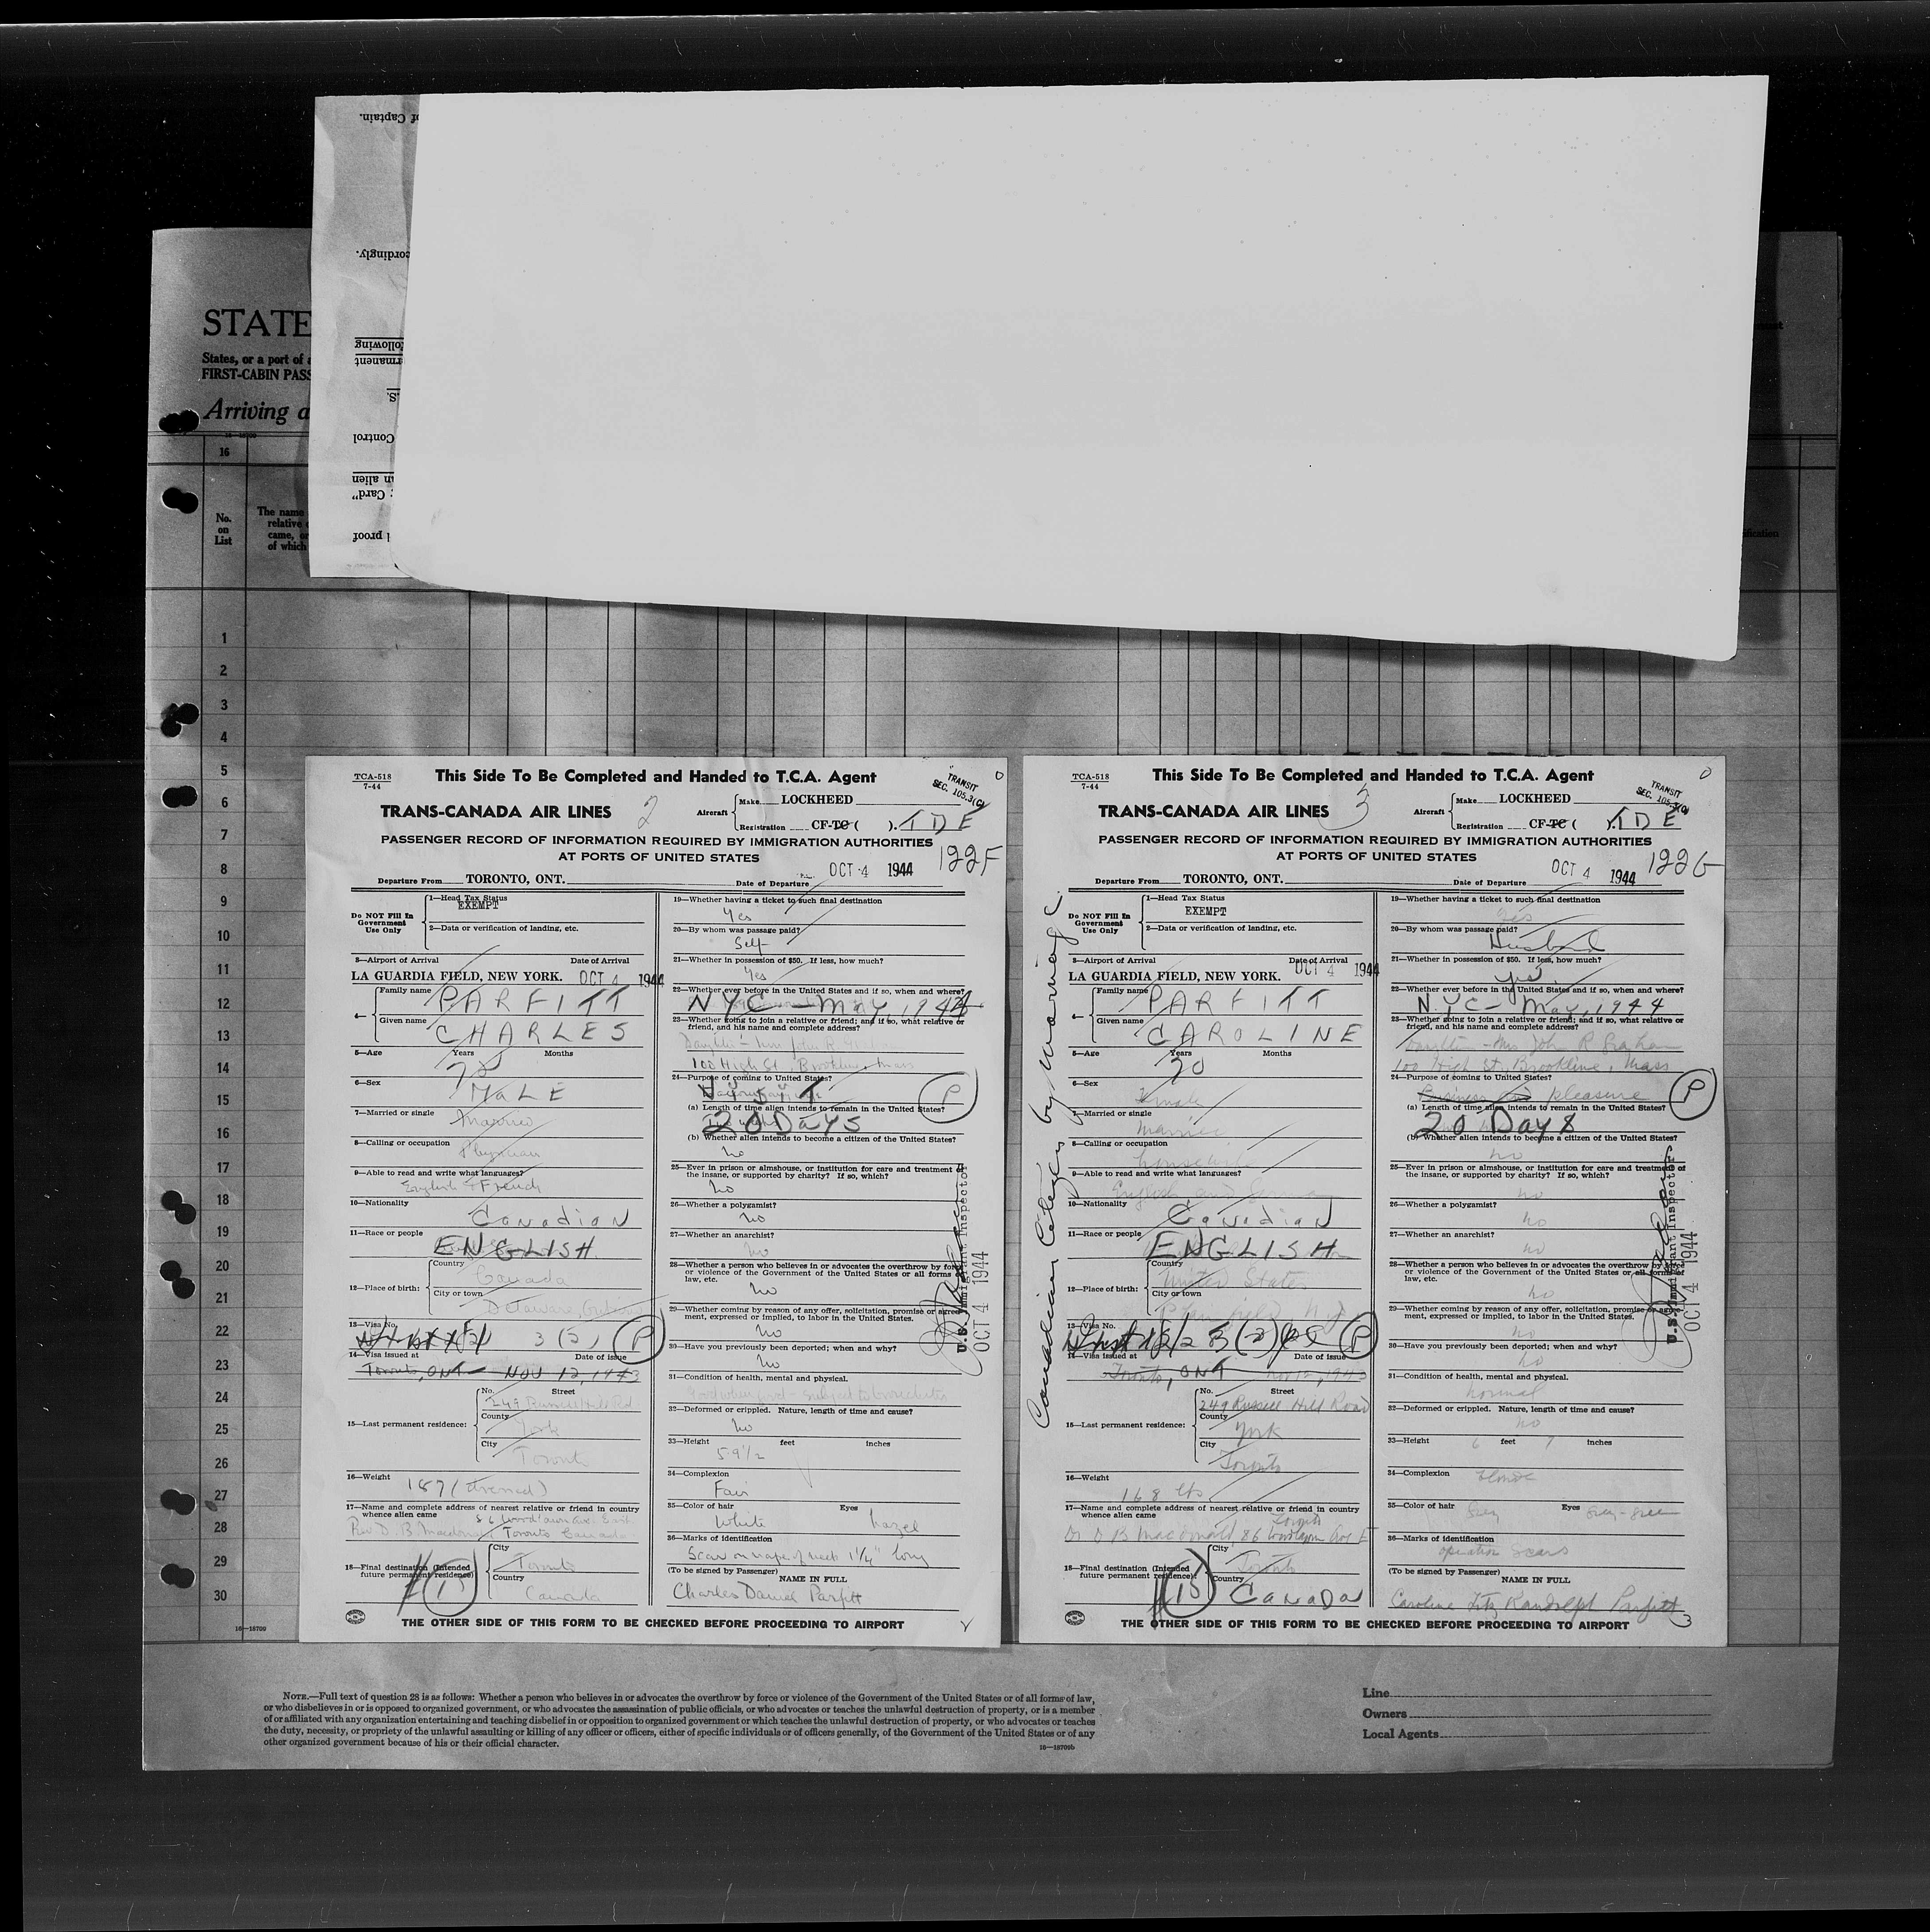 of Captain.
cordingly.
following
ermanent
.S.
Control
an alien
Card"
proof
STATE
States, or a port of a
FIRST-CABIN PASS
Arriving a
16
No.
on
List
The name
relative
came, or
of which
1
2
3
4
5
6
7
8
9
10
11
12
13
14
15
16
17
18
19
20
21
22
23
24
25
26
27
28
29
30
16—18709
TCA-518
7-44
This Side To Be Completed and Handed to T.C.A. Agent
TRANSIT
SEC. 105.3(C)
TRANS-CANADA AIR LINES 2
Aircraft Make LOCKHEED
Registration CF-TC ( ). TDE
PASSENGER RECORD OF INFORMATION REQUIRED BY IMMIGRATION AUTHORITIES
AT PORTS OF UNITED STATES
122F
Departure From TORONTO, ONT. Date of Departure OCT 4 1944
Do NOT Fill In
Government
Use Only
1—Head Tax Status
EXEMPT
2—Data or verification of landing, etc.
3—Airport of Arrival Date of Arrival
LA GUARDIA FIELD, NEW YORK. OCT 4 1944
4— Family name PARFITT
Given name CHARLES
5—Age Years Months
6—Sex MALE
7—Married or single Married
8—Calling or occupation Physician
9—Able to read and write what languages?
English + French
10—Nationality Canadian
11—Race or people ENGLISH
12—Place of birth: Country Canada
City or town Delaware,
13—Visa No. 3 (2) P
14—Visa issued at Date of issue
Toronto, ONT — NOV 12, 1943
15—Last permanent residence: No. Street
249 Russell Hill Rd
County York
City Toronto
16—Weight 187 (dressed)
17—Name and complete address of nearest relative or friend in country
whence alien came
D. B. Macdonald Toronto Canada
18—Final destination (Intended
future permanent residence)
City Toronto
Country Canada
19—Whether having a ticket to such final destination
Yes
20—By whom was passage paid?
Self
21—Whether in possession of $50. If less, how much?
Yes
22—Whether ever before in the United States and if so, when and where?
NYC — May, 1944
23—Whether going to join a relative or friend; and if so, what relative or
friend, and his name and complete address?
Daughter - Mrs John R.
100 High St, Brookline, Mass
24—Purpose of coming to United States?
VISIT P
(a) Length of time alien intends to remain in the United States?
20 Days
(b) Whether alien intends to become a citizen of the United States?
no
25—Ever in prison or almshouse, or institution for care and treatment of
the insane, or supported by charity? If so, which?
no
26—Whether a polygamist?
no
27—Whether an anarchist?
no
28—Whether a person who believes in or advocates the overthrow by force
or violence of the Government of the United States or all forms of
law, etc.
no
29—Whether coming by reason of any offer, solicitation, promise or agree-
ment, expressed or implied, to labor in the United States.
no
30—Have you previously been deported; when and why?
no
31—Condition of health, mental and physical.
32—Deformed or crippled. Nature, length of time and cause?
no
33—Height feet inches
5 9 1/2
34—Complexion
Fair
35—Color of hair Eyes
White hazel
36—Marks of identification
Scar on nape of neck 1 1/4" long
(To be signed by Passenger)
NAME IN FULL
Charles Daniel Parfitt
U.S. Immigrant Inspector
OCT 4 1944
THE OTHER SIDE OF THIS FORM TO BE CHECKED BEFORE PROCEEDING TO AIRPORT
TCA-518
7-44
This Side To Be Completed and Handed to T.C.A. Agent
TRANSIT
SEC. 105.3(C)
TRANS-CANADA AIR LINES 3
Aircraft Make LOCKHEED
Registration CF-TC ( ). TDE
PASSENGER RECORD OF INFORMATION REQUIRED BY IMMIGRATION AUTHORITIES
AT PORTS OF UNITED STATES
122G
Departure From TORONTO, ONT. Date of Departure OCT 4 1944
Canadian Citizen by Marriage
Do NOT Fill In
Government
Use Only
1—Head Tax Status
EXEMPT
2—Data or verification of landing, etc.
3—Airport of Arrival Date of Arrival
LA GUARDIA FIELD, NEW YORK. OCT 4 1944
4— Family name PARFITT
Given name CAROLINE
5—Age Years Months
70
6—Sex Female
7—Married or single Married
8—Calling or occupation housewife
9—Able to read and write what languages?
English and German
10—Nationality Canadian
11—Race or people ENGLISH
12—Place of birth: Country United States
City or town Plainfield N.J.
13—Visa No. P
14—Visa issued at Date of issue
Toronto, ONT Nov 12, 1943
15—Last permanent residence: No. Street
249 Russell Hill Road
County York
City Toronto
16—Weight 168 lbs
17—Name and complete address of nearest relative or friend in country
whence alien came Toronto
Dr D B Macdonald, 86 Woodlawn Ave E
18—Final destination (Intended
future permanent residence)
City Toronto
Country CANADA
19—Whether having a ticket to such final destination
yes
20—By whom was passage paid?
Husband
21—Whether in possession of $50. If less, how much?
yes
22—Whether ever before in the United States and if so, when and where?
N.Y.C — May, 1944
23—Whether going to join a relative or friend; and if so, what relative or
friend, and his name and complete address?
Daughter - Mrs John R Graham
100 High St, Brookline, Mass
24—Purpose of coming to United States?
Business and pleasure P
(a) Length of time alien intends to remain in the United States?
20 Days
(b) Whether alien intends to become a citizen of the United States?
no
25—Ever in prison or almshouse, or institution for care and treatment of
the insane, or supported by charity? If so, which?
no
26—Whether a polygamist?
no
27—Whether an anarchist?
no
28—Whether a person who believes in or advocates the overthrow by force
or violence of the Government of the United States or all forms of
law, etc.
no
29—Whether coming by reason of any offer, solicitation, promise or agree-
ment, expressed or implied, to labor in the United States.
no
30—Have you previously been deported; when and why?
no
31—Condition of health, mental and physical.
normal
32—Deformed or crippled. Nature, length of time and cause?
no
33—Height feet inches
34—Complexion
35—Color of hair Eyes
Grey grey-green
36—Marks of identification
operation scars
(To be signed by Passenger)
NAME IN FULL
Caroline Fitz Randolph Parfitt
3
U.S. Immigrant Inspector
OCT 4 1944
THE OTHER SIDE OF THIS FORM TO BE CHECKED BEFORE PROCEEDING TO AIRPORT
NOTE.—Full text of question 28 is as follows: Whether a person who believes in or advocates the overthrow by force or violence of the Government of the United States or of all forms of law,
or who disbelieves in or is opposed to organized government, or who advocates the assassination of public officials, or who advocates or teaches the unlawful destruction of property, or is a member
of or affiliated with any organization entertaining and teaching disbelief in or opposition to organized government or which teaches the unlawful destruction of property, or who advocates or teaches
the duty, necessity, or propriety of the unlawful assaulting or killing of any officer or officers, either of specific individuals or of officers generally, of the Government of the United States or of any
other organized government because of his or their official character.
16—18709b
Line
Owners
Local Agents